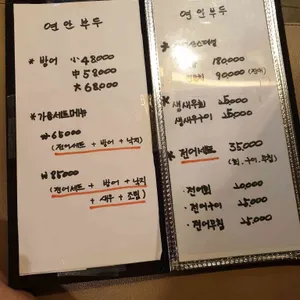 연안부두
* 방어 小 48,000
中 58,000
大 68,000
* 가을세트메뉴
* 65,000
(전어세트 + 방어 + 낙지)
* 85000
(전어세트 + 방어 + 낙지
+ 새우 + 조림)
연안부두
180,000
90,000
생새우회 25,000
생새우구이 25,000
* 전어세트 35,000
(회, 구이, 무침)
· 전어회
· 전어구이 25,000
· 전어무침 25,000